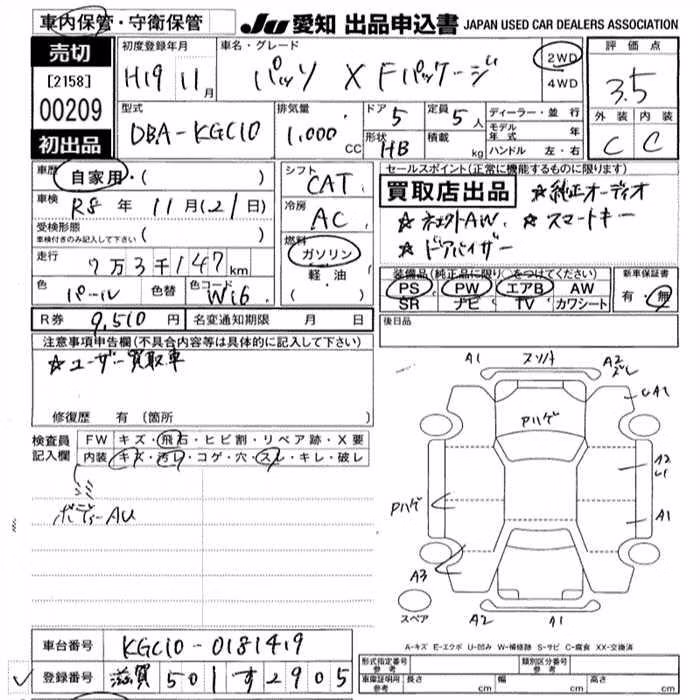 車内保管・守衛保管
JU 愛知 出品申込書 JAPAN USED CAR DEALERS ASSOCIATION
売切
[2158]
00209
初出品
初度登録年月
H19 11月
車名・グレード
パッソ X Fパッケージ
2WD
4WD
評価点
3.5
外装 内装
C C
型式
DBA-KGC10
排気量
1,000 CC
ドア 5
形状 HB
定員 5人
積載 kg
ディーラー・並行
モデル年式 年
ハンドル 左・右
車歴 自家用・( )
車検 R8年 11月(21日)
受検形態
車検付きのみ記入して下さい ( )
走行 7万3千147km
色 パール 色替 色コード W16
シフト
CAT
冷房
AC
燃料
ガソリン
軽・油
( ・ )
セールスポイント(正常に機能するものに限ります)
買取店出品
☆純正オーディオ
☆ ☆スマートキー
☆ドアバイザー
装備品(純正品に限り○をつけてください)
PS PW エアB AW
SR ナビ TV カワシート
新車保証書
有・無
R券 9,510円 名変通知期限 月 日
後日品
注意事項申告欄(不具合内容等は具体的に記入して下さい)
☆ユーザー買取車
修復歴 有 (箇所 )
検査員記入欄
FW キズ・飛石・ヒビ割・リペア跡・X要
内装 キズ・汚レ・コゲ・穴・スレ・キレ・破レ
ボデーAU
A1
A2
UA1
Pハゲ
A2
U1
Pハゲ
A1
A3
スペア
A2
A1
A-キズ E-エクボ U-凹み W-補修跡 S-サビ C-腐食 XX-交換済
車台番号 KGC10-0181419
登録番号 滋賀 501 す 2905
形式指定番号
参考
類別区分番号
参考
車庫証明用
参考
長さ cm 幅 cm 高さ cm